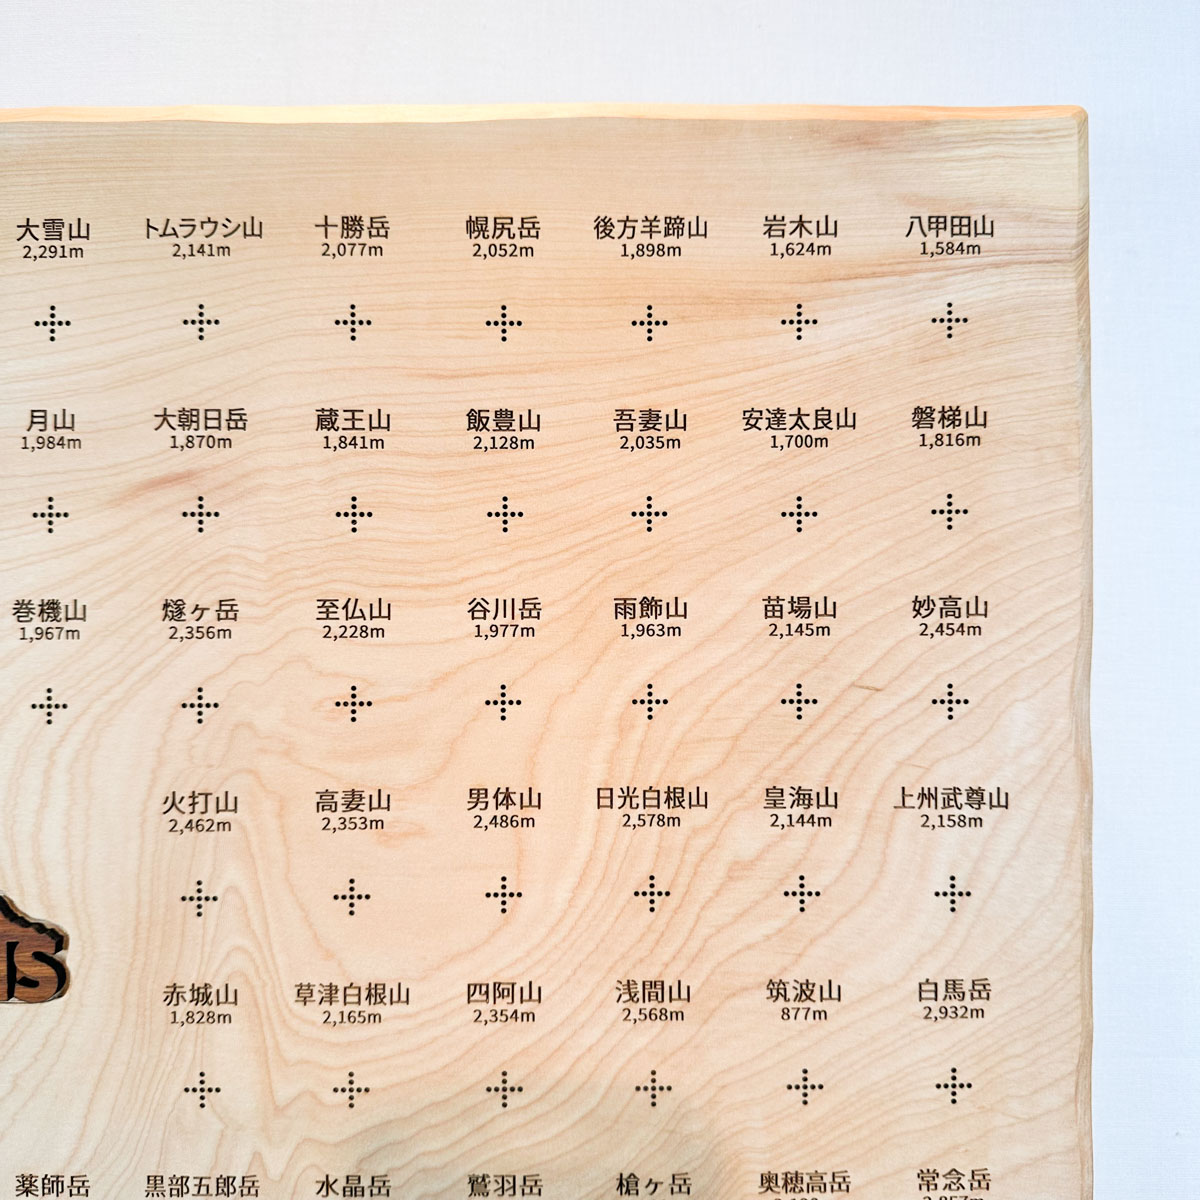 大雪山 トムラウシ山 十勝岳 幌尻岳 後方羊蹄山 岩木山 八甲田山
2,291m 2,141m 2,077m 2,052m 1,898m 1,624m 1,584m
月山 大朝日岳 蔵王山 飯豊山 吾妻山 安達太良山 磐梯山
1,984m 1,870m 1,841m 2,128m 2,035m 1,700m 1,816m
巻機山 燧ヶ岳 至仏山 谷川岳 雨飾山 苗場山 妙高山
1,967m 2,356m 2,228m 1,977m 1,963m 2,145m 2,454m
火打山 高妻山 男体山 日光白根山 皇海山 上州武尊山
2,462m 2,353m 2,486m 2,578m 2,144m 2,158m
赤城山 草津白根山 四阿山 浅間山 筑波山 白馬岳
1,828m 2,165m 2,354m 2,568m 877m 2,932m
薬師岳 黒部五郎岳 水晶岳 鷲羽岳 槍ヶ岳 奥穂高岳 常念岳